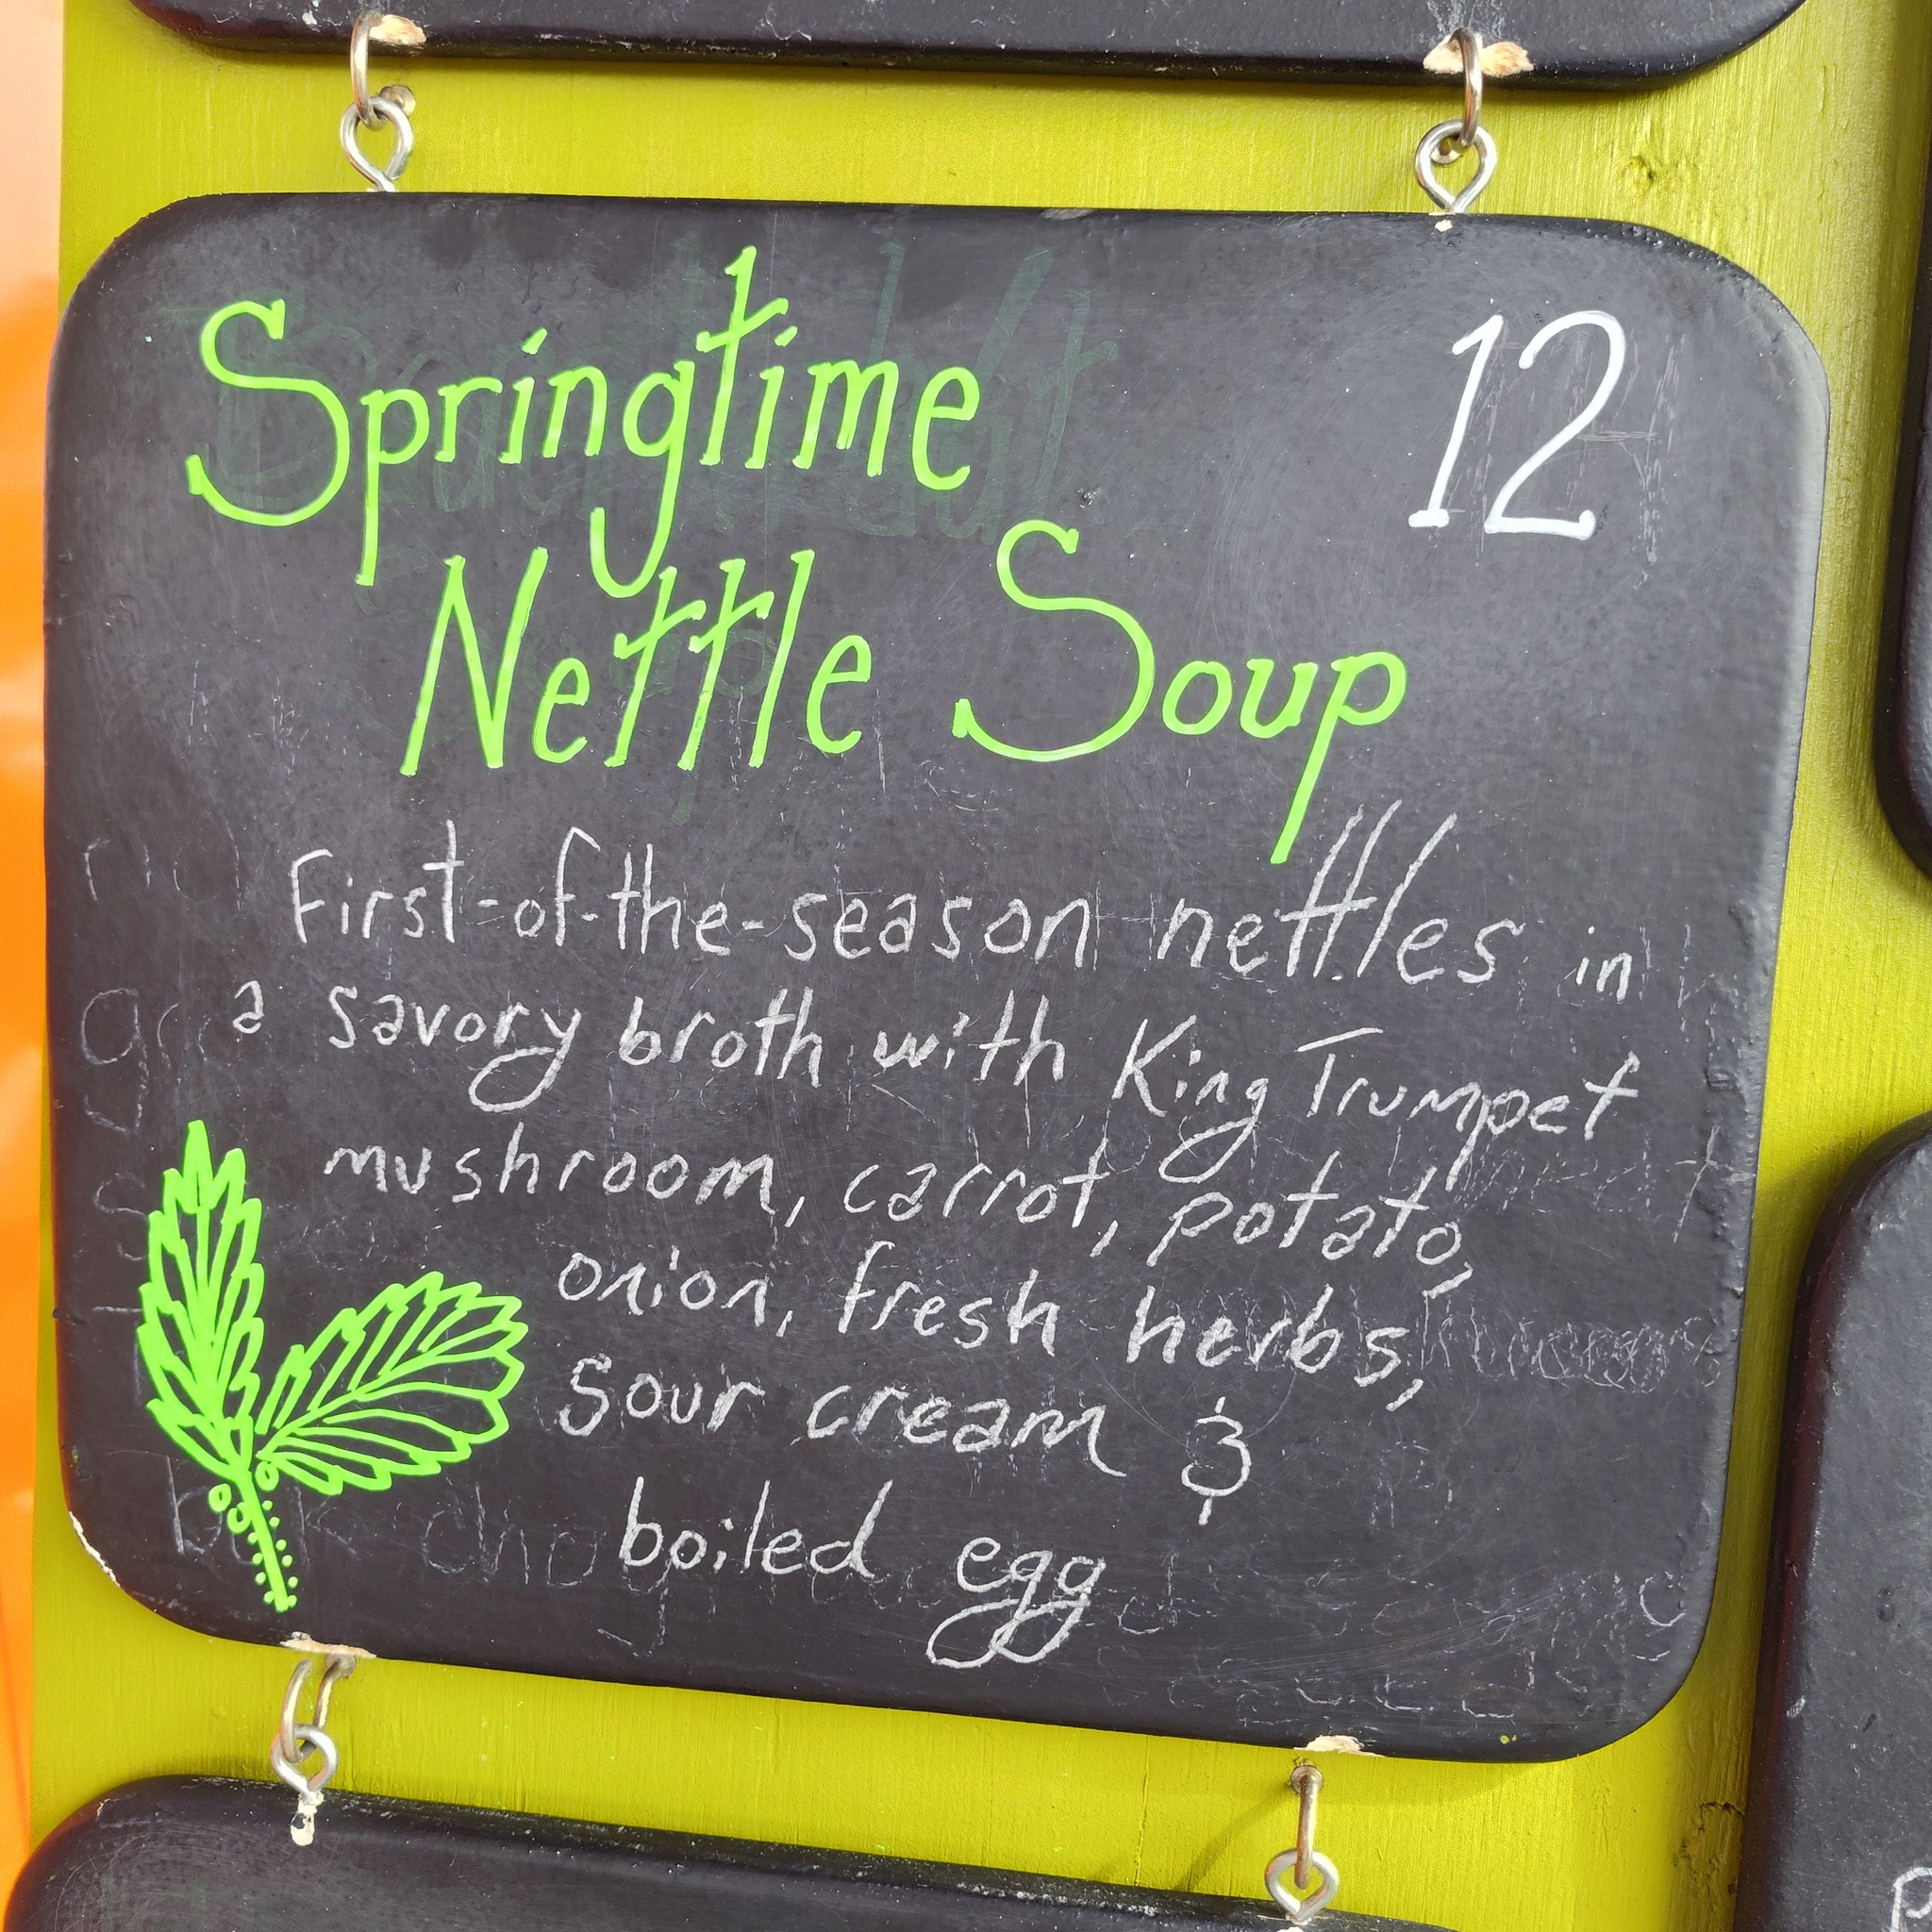 Springtime 12
Nettle Soup
First-of-the-season nettles in
a savory broth with King Trumpet
mushroom, carrot, potato,
onion, fresh herbs,
sour cream &
boiled egg